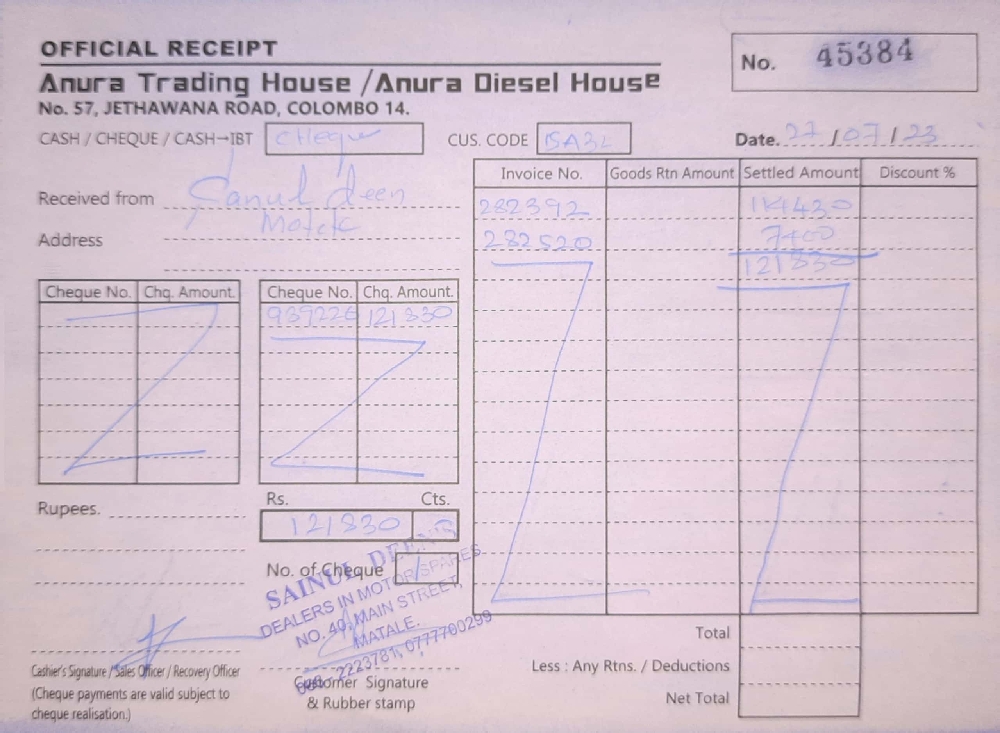 OFFICIAL RECEIPT
No. 45384
Anura Trading House /Anura Diesel House
No. 57, JETHAWANA ROAD, COLOMBO 14.
CASH / CHEQUE / CASH→IBT Cheque
CUS. CODE
Date. 27 / 07 / 23
Received from Sanul deen
Address Matale
Invoice No. Goods Rtn Amount Settled Amount Discount %
282392 114430
282520 7400
121830
Cheque No. Chq. Amount. Cheque No. Chq. Amount.
939226 121830
Rupees.
Rs. Cts.
121830
No. of Cheque 1
SAINUL DEEN
DEALERS IN MOTOR SPARES
NO. 40, MAIN STREET,
MATALE.
066 2223781, 0777700299
Cashier's Signature / Sales Officer / Recovery Officer
(Cheque payments are valid subject to
cheque realisation.)
Customer Signature
& Rubber stamp
Total
Less : Any Rtns. / Deductions
Net Total